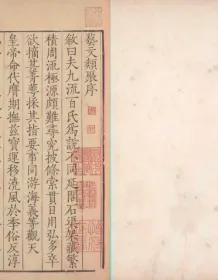 藝文類聚序
敘曰夫九流百氏爲說不同延閣石渠架藏繁
積周流極源頗難尋究披條索貫日用弘多卒
欲摘其菁華採其指要事同游海義等觀天
皇帝命代膺期撫茲寶運移澆風於季俗反淳